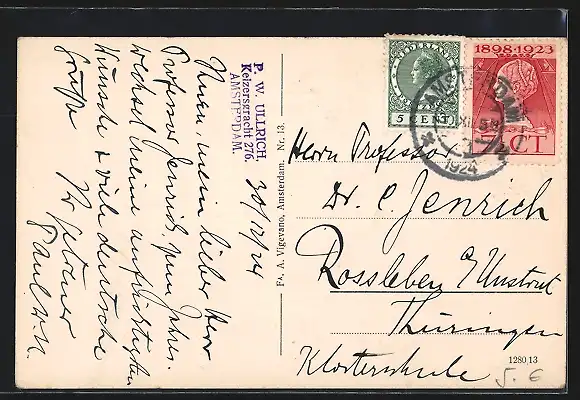 P. W. ULLRICH,
Keizersgracht 276.
AMSTERDAM.
30/12/24
Ihnen, mein lieber Herr
Professor Jenrich, zum Jahres-
wechsel meine aufrichtigsten
Wünsche & viele deutsche
Grüße
Ihr getreuer
Paul
Fa. A. Vigevano, Amsterdam. Nr. 13.
NEDERLAND
5 CENT
1898-1923
CT
AMSTERDAM
1924
Herrn Professor
Dr. C. Jenrich
Rossleben a/Unstrut
Thüringen
Klosterschule
1280 13
5.-€